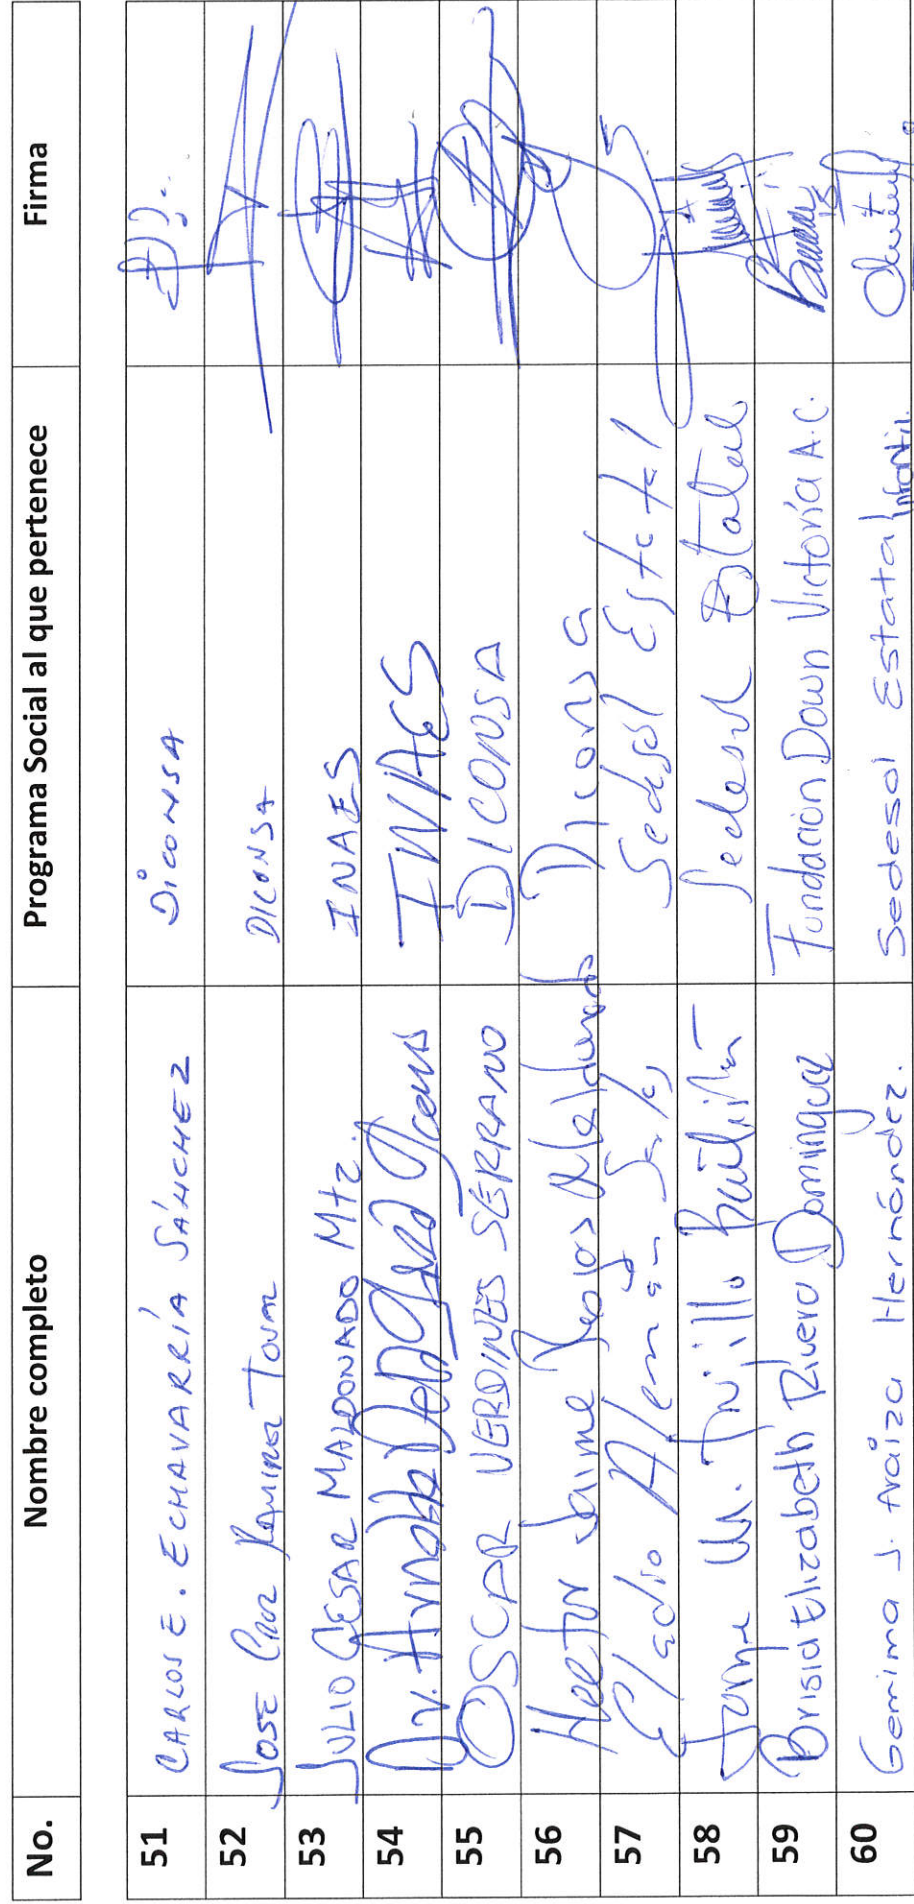 No. Nombre completo Programa Social al que pertenece Firma
51 CARLOS E. ECHAVARRÍA SÁNCHEZ DICONSA
52 JOSE CRUZ RAMIREZ TOVAR DICONSA
53 JULIO CESAR MALDONADO Mtz. INAES
54 INAES
55 OSCAR VERDINES SERRANO DICONSA
56 Hector Jaime Rojas Maldonado Diconsa
57 Eladio Alemán Sedesol Estatal
58 Jorge M. Trujillo Sedesol Estatal
59 Brisia Elizabeth Rivero Dominguez Fundacion Down Victoria A.C.
60 Gemima J. Araiza Hernández. Sedesol Estatal Infantil